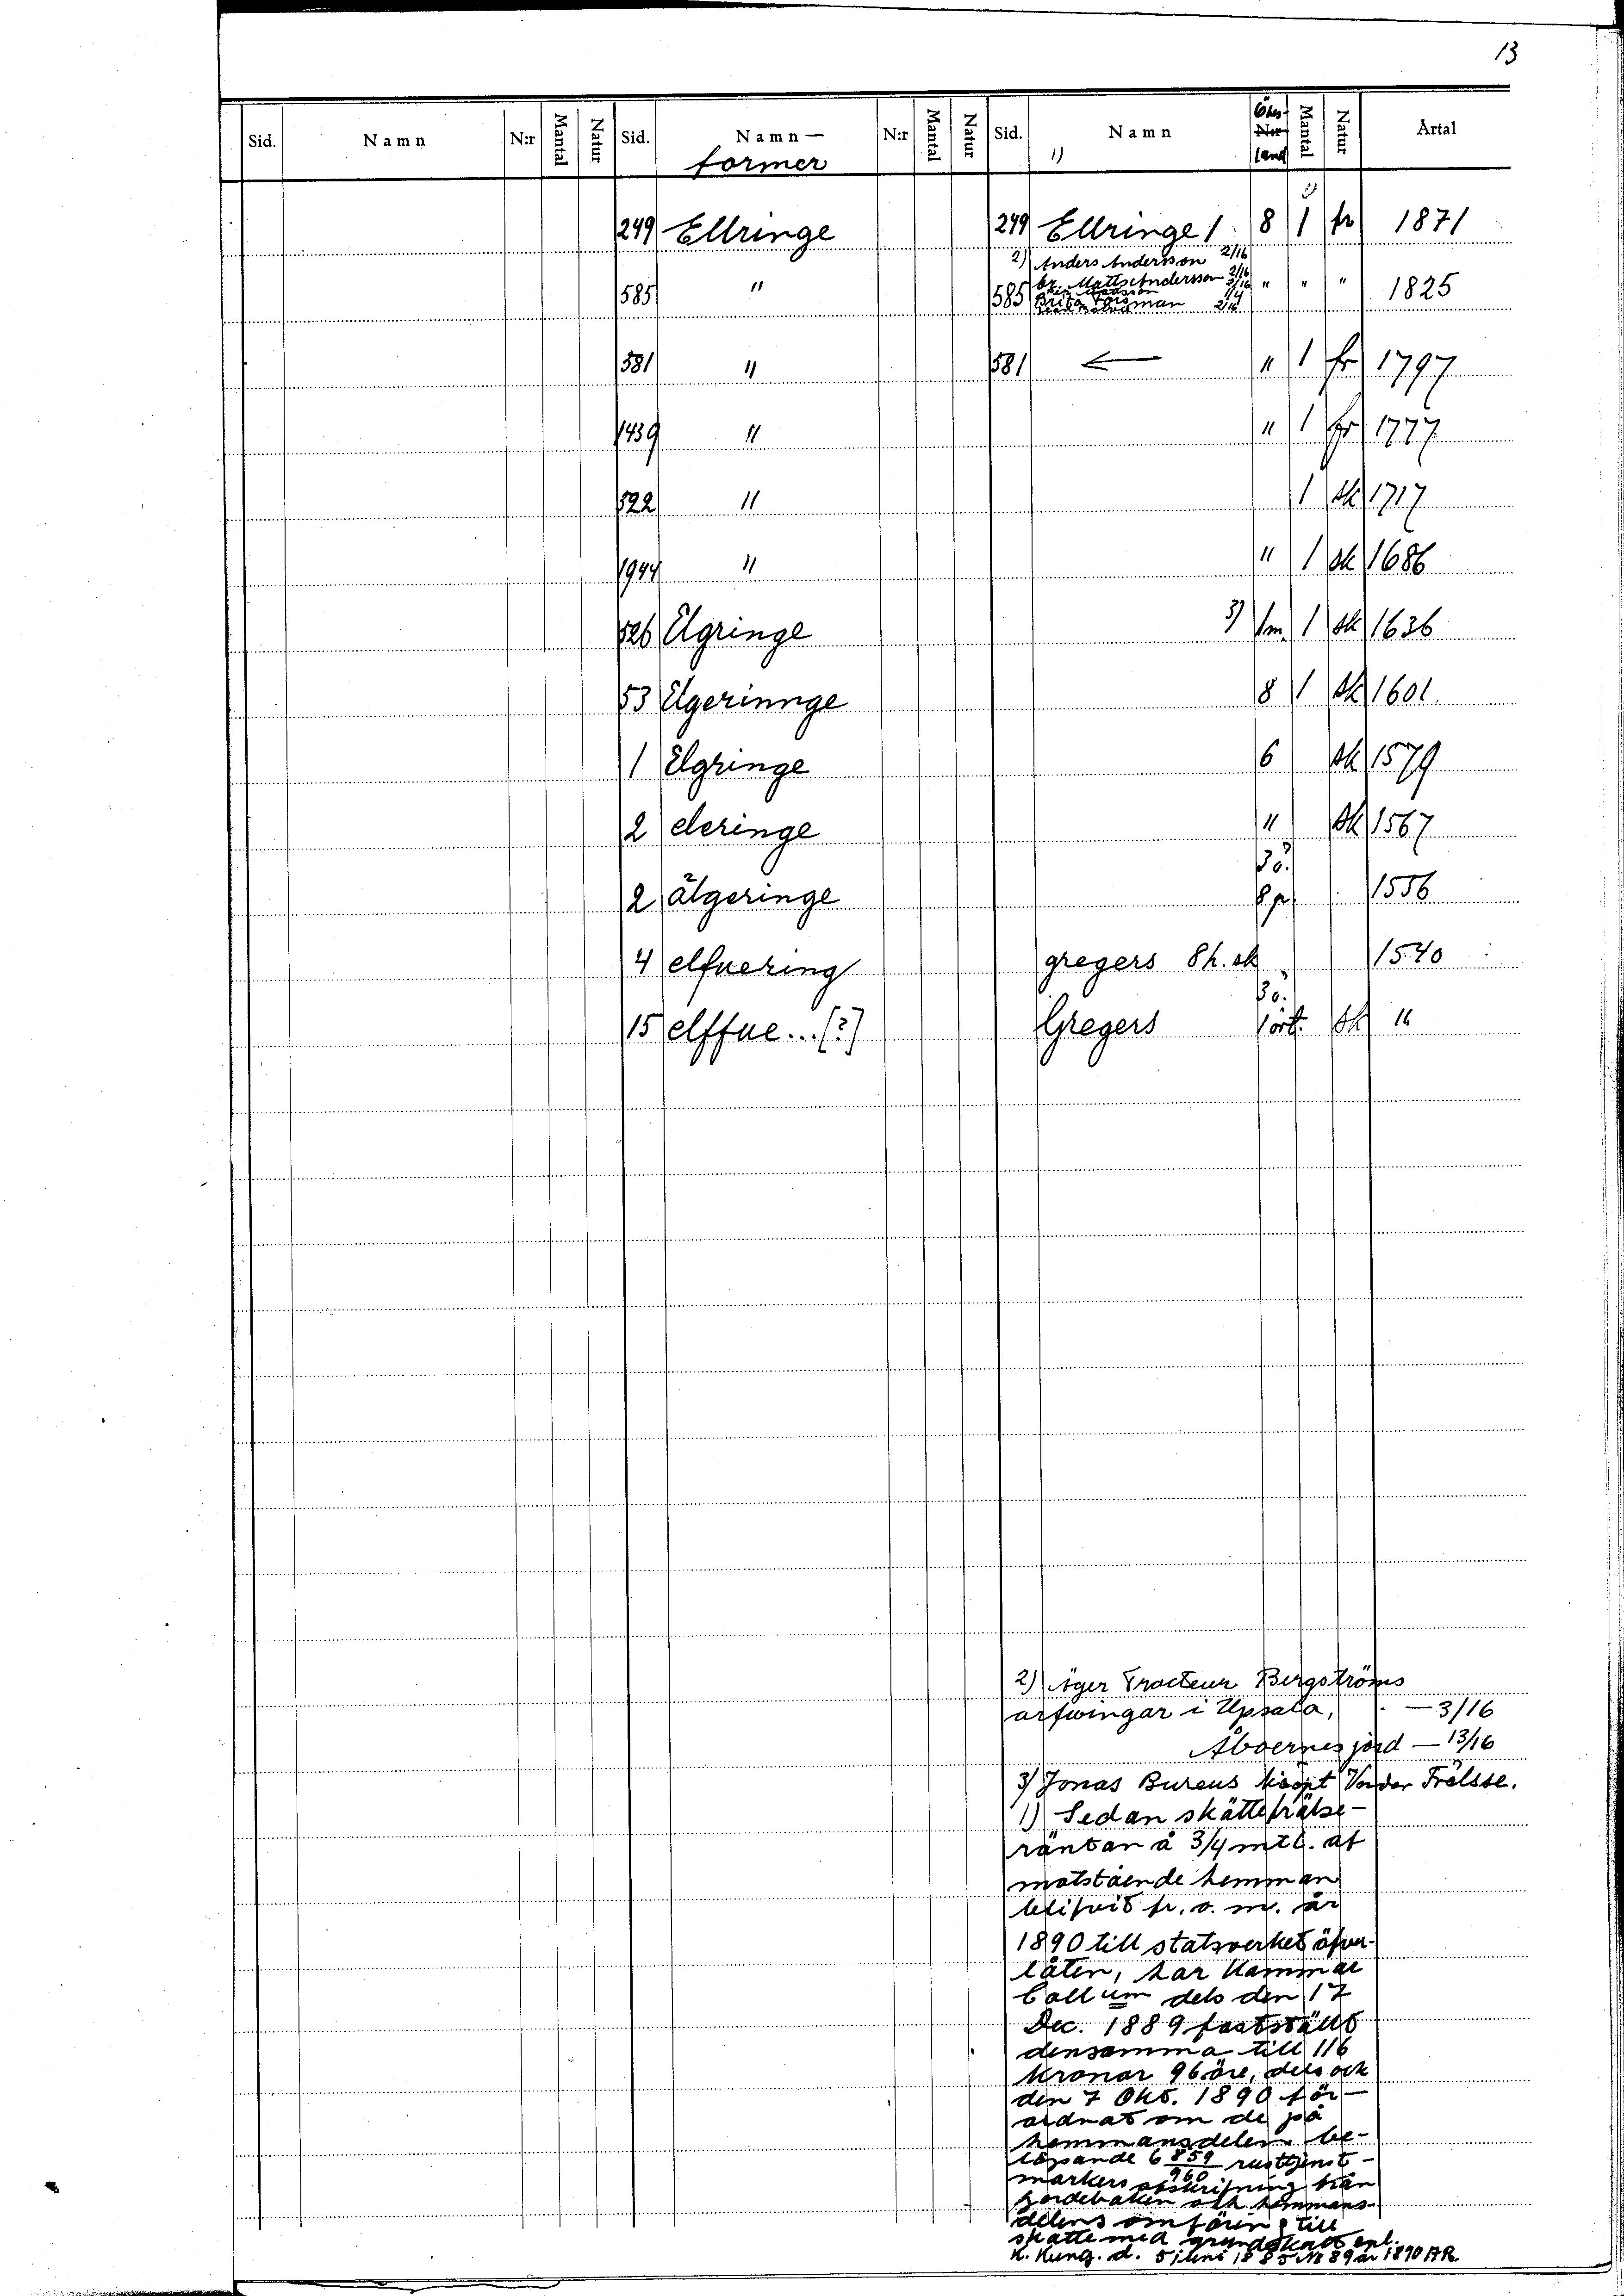 13
Sid. Namn N:r Mantal Natur Sid. Namn— N:r Mantal Natur Sid. Namn Öres- N:r Mantal Natur Årtal
former 1) land
1)
249 Ellringe 249 Ellringe 1 8 1 fr 1871
2) Anders Andersson 2/16
Matts Andersson 2/16
585 " 585 2/16 " " " 1825
Brita Forsman 1/4
2/16
581 " 581 ← " 1 fr 1797
1439 " " 1 fr 1777
522 " 1 sk 1717
1944 " " 1 sk 1686
526 Elgringe 3) 1m. 1 sk 1636
53 Elgerinnge 8 1 sk 1601.
1 Elgringe 6 sk 1579
2 eleringe " sk 1567
3ö.
2 älgeringe 8 p 1556
4 elfuering gregers 8h. sk 1540
3ö.
15 elffue...[?] Gregers 1 ört. sk "
2) Äger Tracteur Bergströms
arfwingar i Upsala, — 3/16
Åboernes jord — 13/16
3) Jonas Bureus kiöpt Vnder Frälsse.
1) Sedan skattefrälse-
räntan å 3/4 mtl. af
motstående hemman
blifvit fr. o. m. år
1890 till statsverket öfver-
låten, har Kammar
Coll um dels den 17
Dec. 1889 fastställt
densamma till 116
kronor 96 öre, dels ock
den 7 Okt. 1890 för-
ordnat om de på
hemmansdelen be-
löpande 6 859/960 rusttjenst-
markers afskrifning från
jordeboken och hemmans-
delens omföring till
skatte med grundskatt enl.
K. Kung. d. 5 juni 1885 № 89 år 1890 AR.